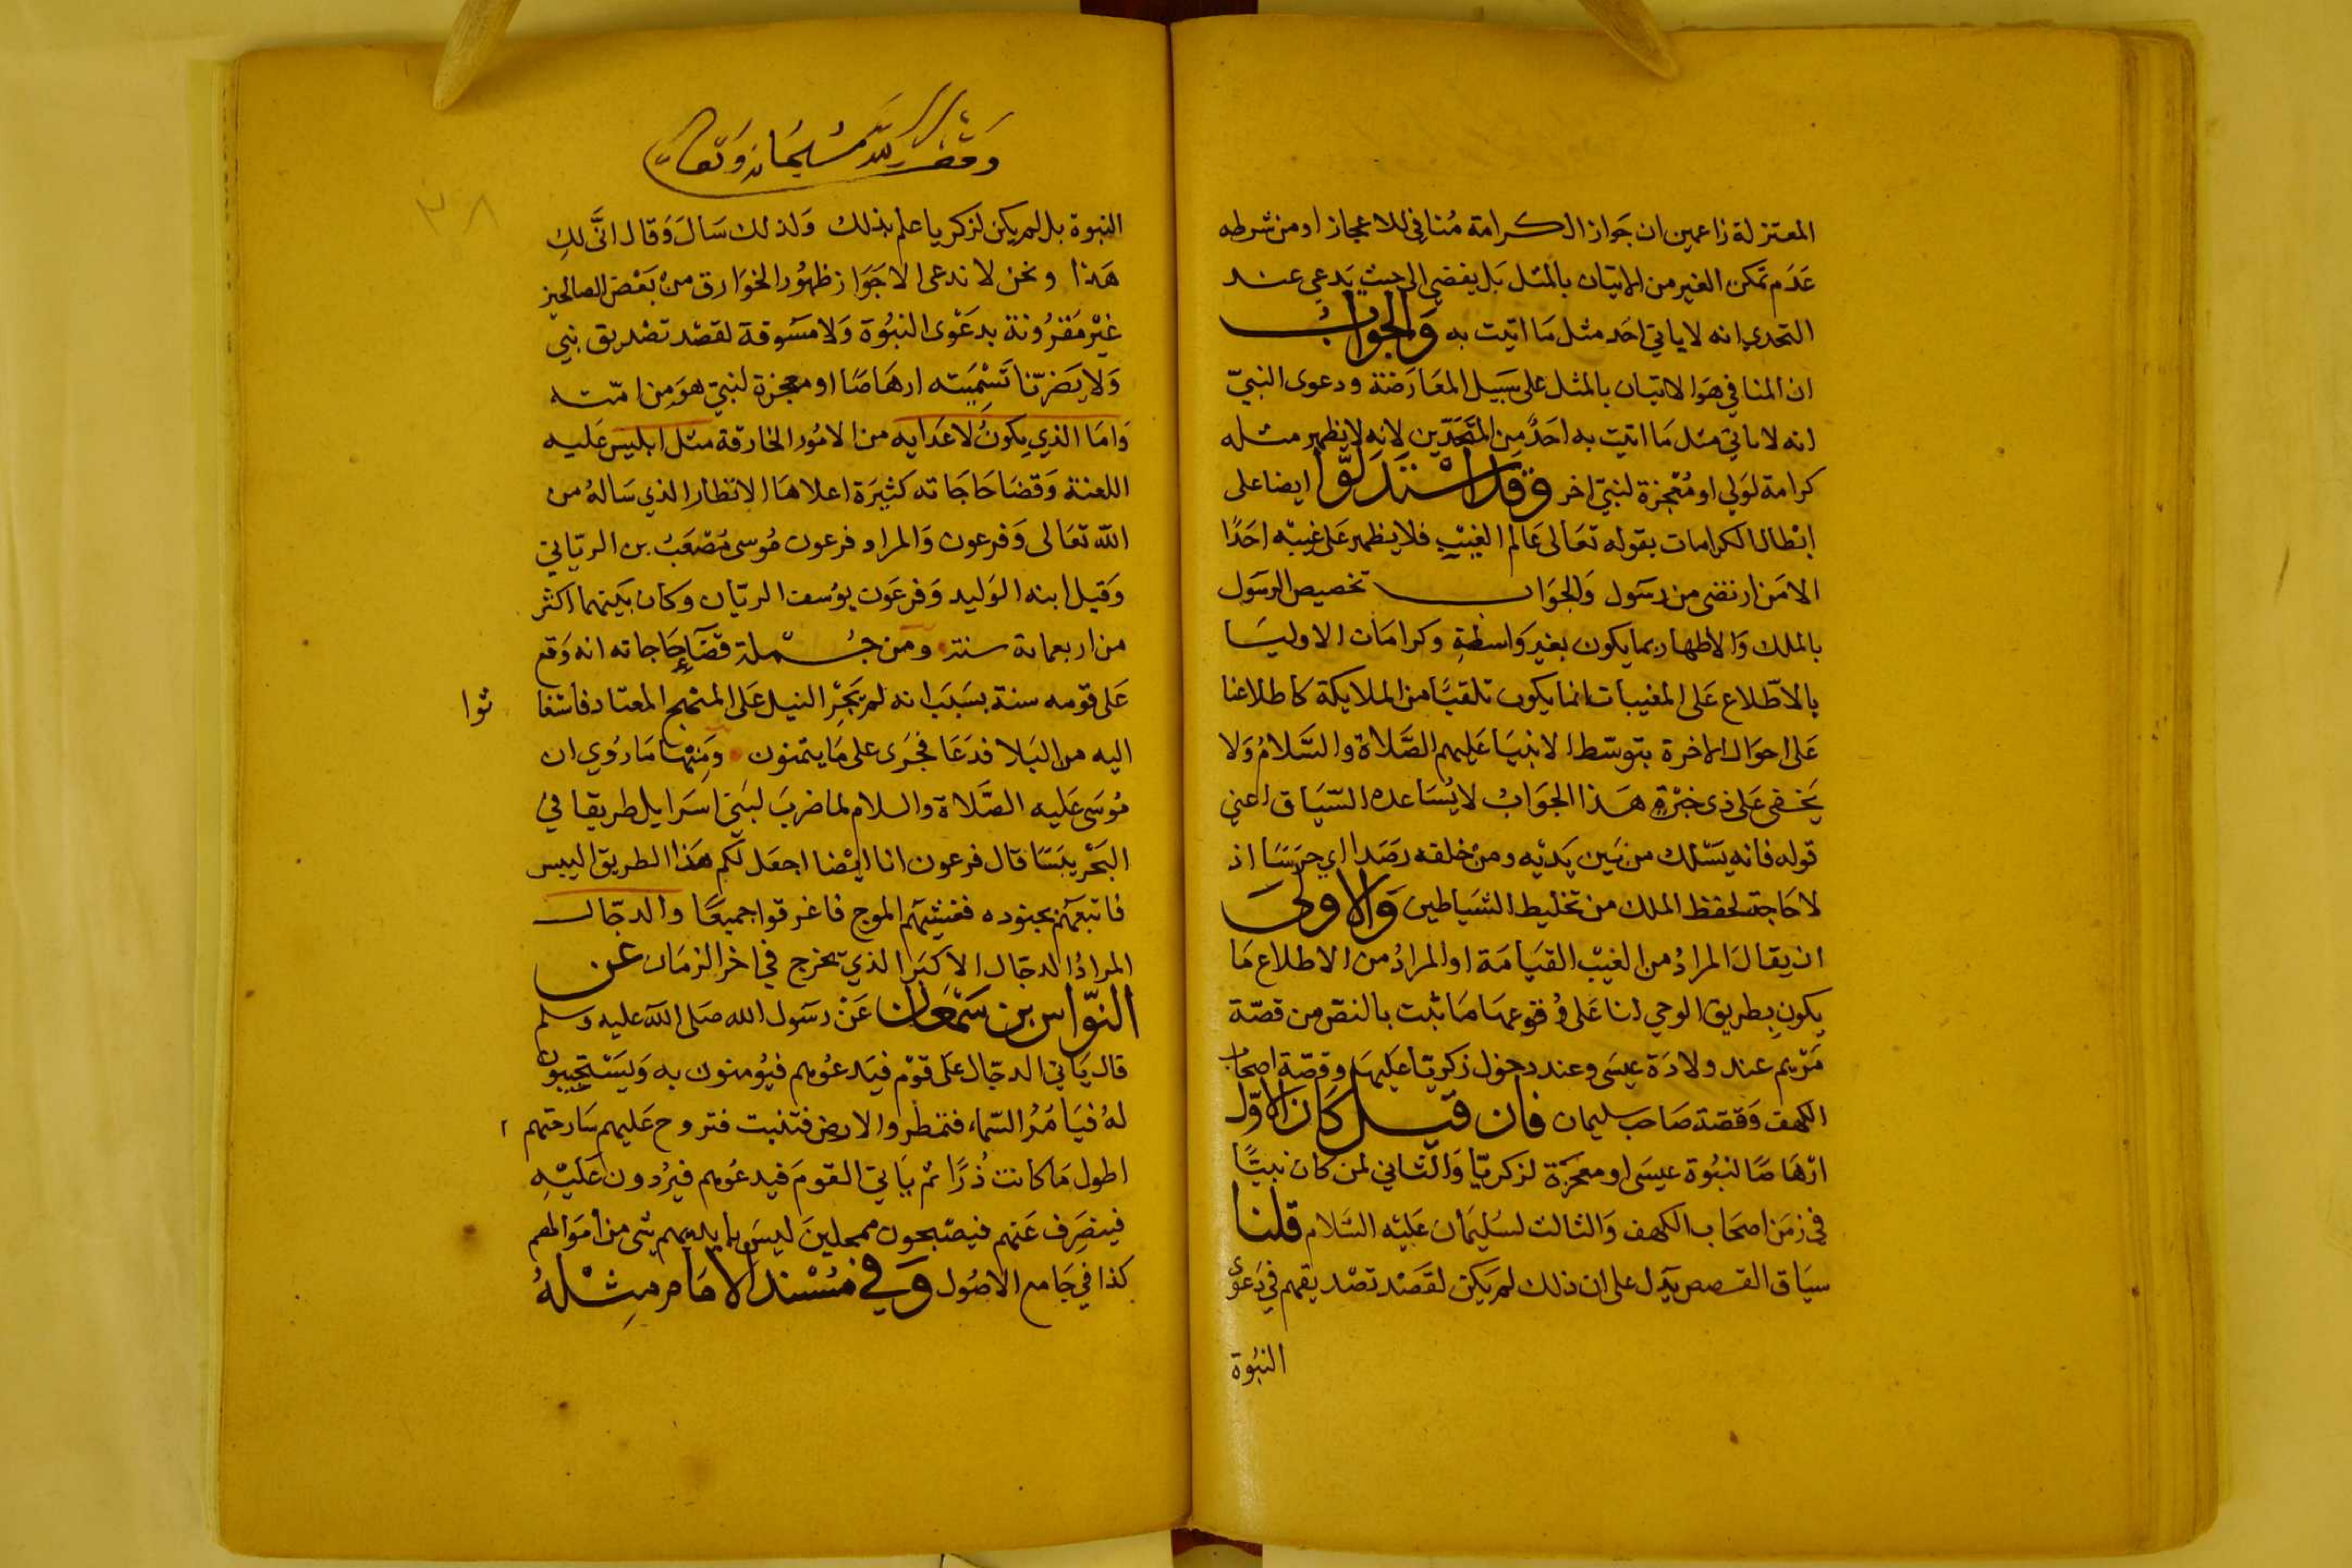 المعتزلة زاعمين ان جَواز الكرامة مُنافى للاعجاز او من شرطه
عَدَم تمكن الغير من الاتيان بالمثل بَل يفضي الى حيث يَدعى عند
التحدي انه لا ياتي احَد مثل مَا اتيت به وَالجوابُ
ان المنافي هوَ الاتيان بالمثل على سَبيل المعَارَضة ودعوى النبيّ
انه لا ياتي مثل مَا اتيت به احَدٌ من المتَحَدّين لانه لا يظهر مثله
كرامة لوَلي او مُعْجزة لنبيّ اخر وَقد اسْتَدَلوّا ايضا على
ابْطال الكرامات بقوله تعَالى عَالم الغيْبِ فلا يظهر عَلى غيبْه احَدًا
الا مَن ارتضى من رسَول وَالجوَاب تخصيص الرسَول
بالملك وَالاظهار بما يكون بغير وَاسطةٍ وكرامَات الاوليَا
بالاطّلاع عَلى المغيبات انما يكون تلقيًا من الملايكة كاطلاعنا
عَلى احوَال الاخرة بتوسّط الانبيَا عَليهم الصَّلاة والسَّلامُ وَلا
يَخفى عَلى ذى خبْرة هَذا الجوَابُ لا يُسَاعده السّيَاق اعني
قوله فانه يَسْلك من بَين يَديْه ومنْ خلفه رصَدا اي حرَسًا اذ
لا حَاجة لحفظ الملك من تخليط الشيَاطين وَالاولىَ
ان يقالَ المرادُ من الغيْب القيَامَة او المرادُ من الاطلاع مَا
يكون بطريق الوحي لنا عَلى وُقوعهَا مَا ثبت بالنصّ من قصّة
مَرْيم عند ولادَة عيسَى وعند دخول زكريّا عَليهَا وقصّة اصحاب
الكهف وَقصّة صَاحب سليمان فان قيل كان الاوّل
ارْهَاصًا لنبُوة عيسَى او معجزة لزكريّا وَالثاني لمن كان نبيًّا
في زمَن اصحَاب الكهف وَالثالث لسُليمَان عَليْه السَّلام قلنا
سيَاق القصص يَدل على ان ذلك لم يَكن لقصَد تصْديقهم في دَعوى
النبُوة
وقف لله سُبْحَانه وَتعَالى
٣٨
النبوة بل لم يكن لزكريا علم بذلك وَلذلك سَالَ وَقال انَّى لكِ
هَذا ونحن لا ندعى الا جَوَاز ظهُور الخوَارق منْ بَعْض الصالحين
غيْر مَقرُونة بدعَوْى النبُوة وَلا مَسُوقة لقصْد تصْديق نبي
وَلا يَضرّنا تسْمِيَته ارهَاصًا او معجزة لنبيّ هوَ من امّته
وَامَا الذي يكونُ لاعَدايه من الامُور الخارقة مثل ابليس عَليه
اللعنة وَقضَا حَاجَاته كثيرَة اعلاهَا الانظار الذي سَالهُ من
الله تعَالى وَفرعون وَالمراد فرعون مُوسى مُصْعَبُ بن الريّاني
وَقيل ابنه الوَليد وَفرعَون يوسُف الريّان وكان بَينهما اكثر
من اربعماية سنة ومَن جُملة قضَآءِ حَاجاته انه وَقع
عَلى قومه سنة بسَبَب انه لم يَجْرِ النيل عَلى المنْهج المعتاد فاستغاثوا
اليه من البَلا فدَعَا فجَرَى على مَا يتمنون ومَنهْا مَا رُوي ان
مُوسَى عَليه الصَّلاة والسلام لما ضربَ لبنَى اسرَايل طريقا في
البَحْر يبَسًا قال فرعون انا ايْضا اجعَل لكم هَذا الطريق اليبس
فاتبعَهُم بجنوده فغشيهَم الموج فاغرقوا جميعًا وَالدجّال
المرادُ الدجّال الاكبَر الذي يَخرج في اخر الزمَان عن
النوّاس بن سَمْعَان عَنْ رسَول الله صَلى الله عليه وسلم
قال يَاتي الدجّال عَلى قوْم فيَدعوُهم فيُومنون به وَليَسْتجيبون
لهُ فيَامُرُ السّماء فتمطر والارض فتنبت فتروح عَليهم سَارحتهم
اطول مَا كانت ذُرًا ثم يَاتي القومَ فيدعوُهم فيرُدون عَليْهِ
فينصَرِف عَنهم فيصْبحون ممحلينَ ليسَ بايديهم شي من امَوَالهم
كذا في جَامع الاصُول وَفي مُسْند الامَام مِثْلهُ